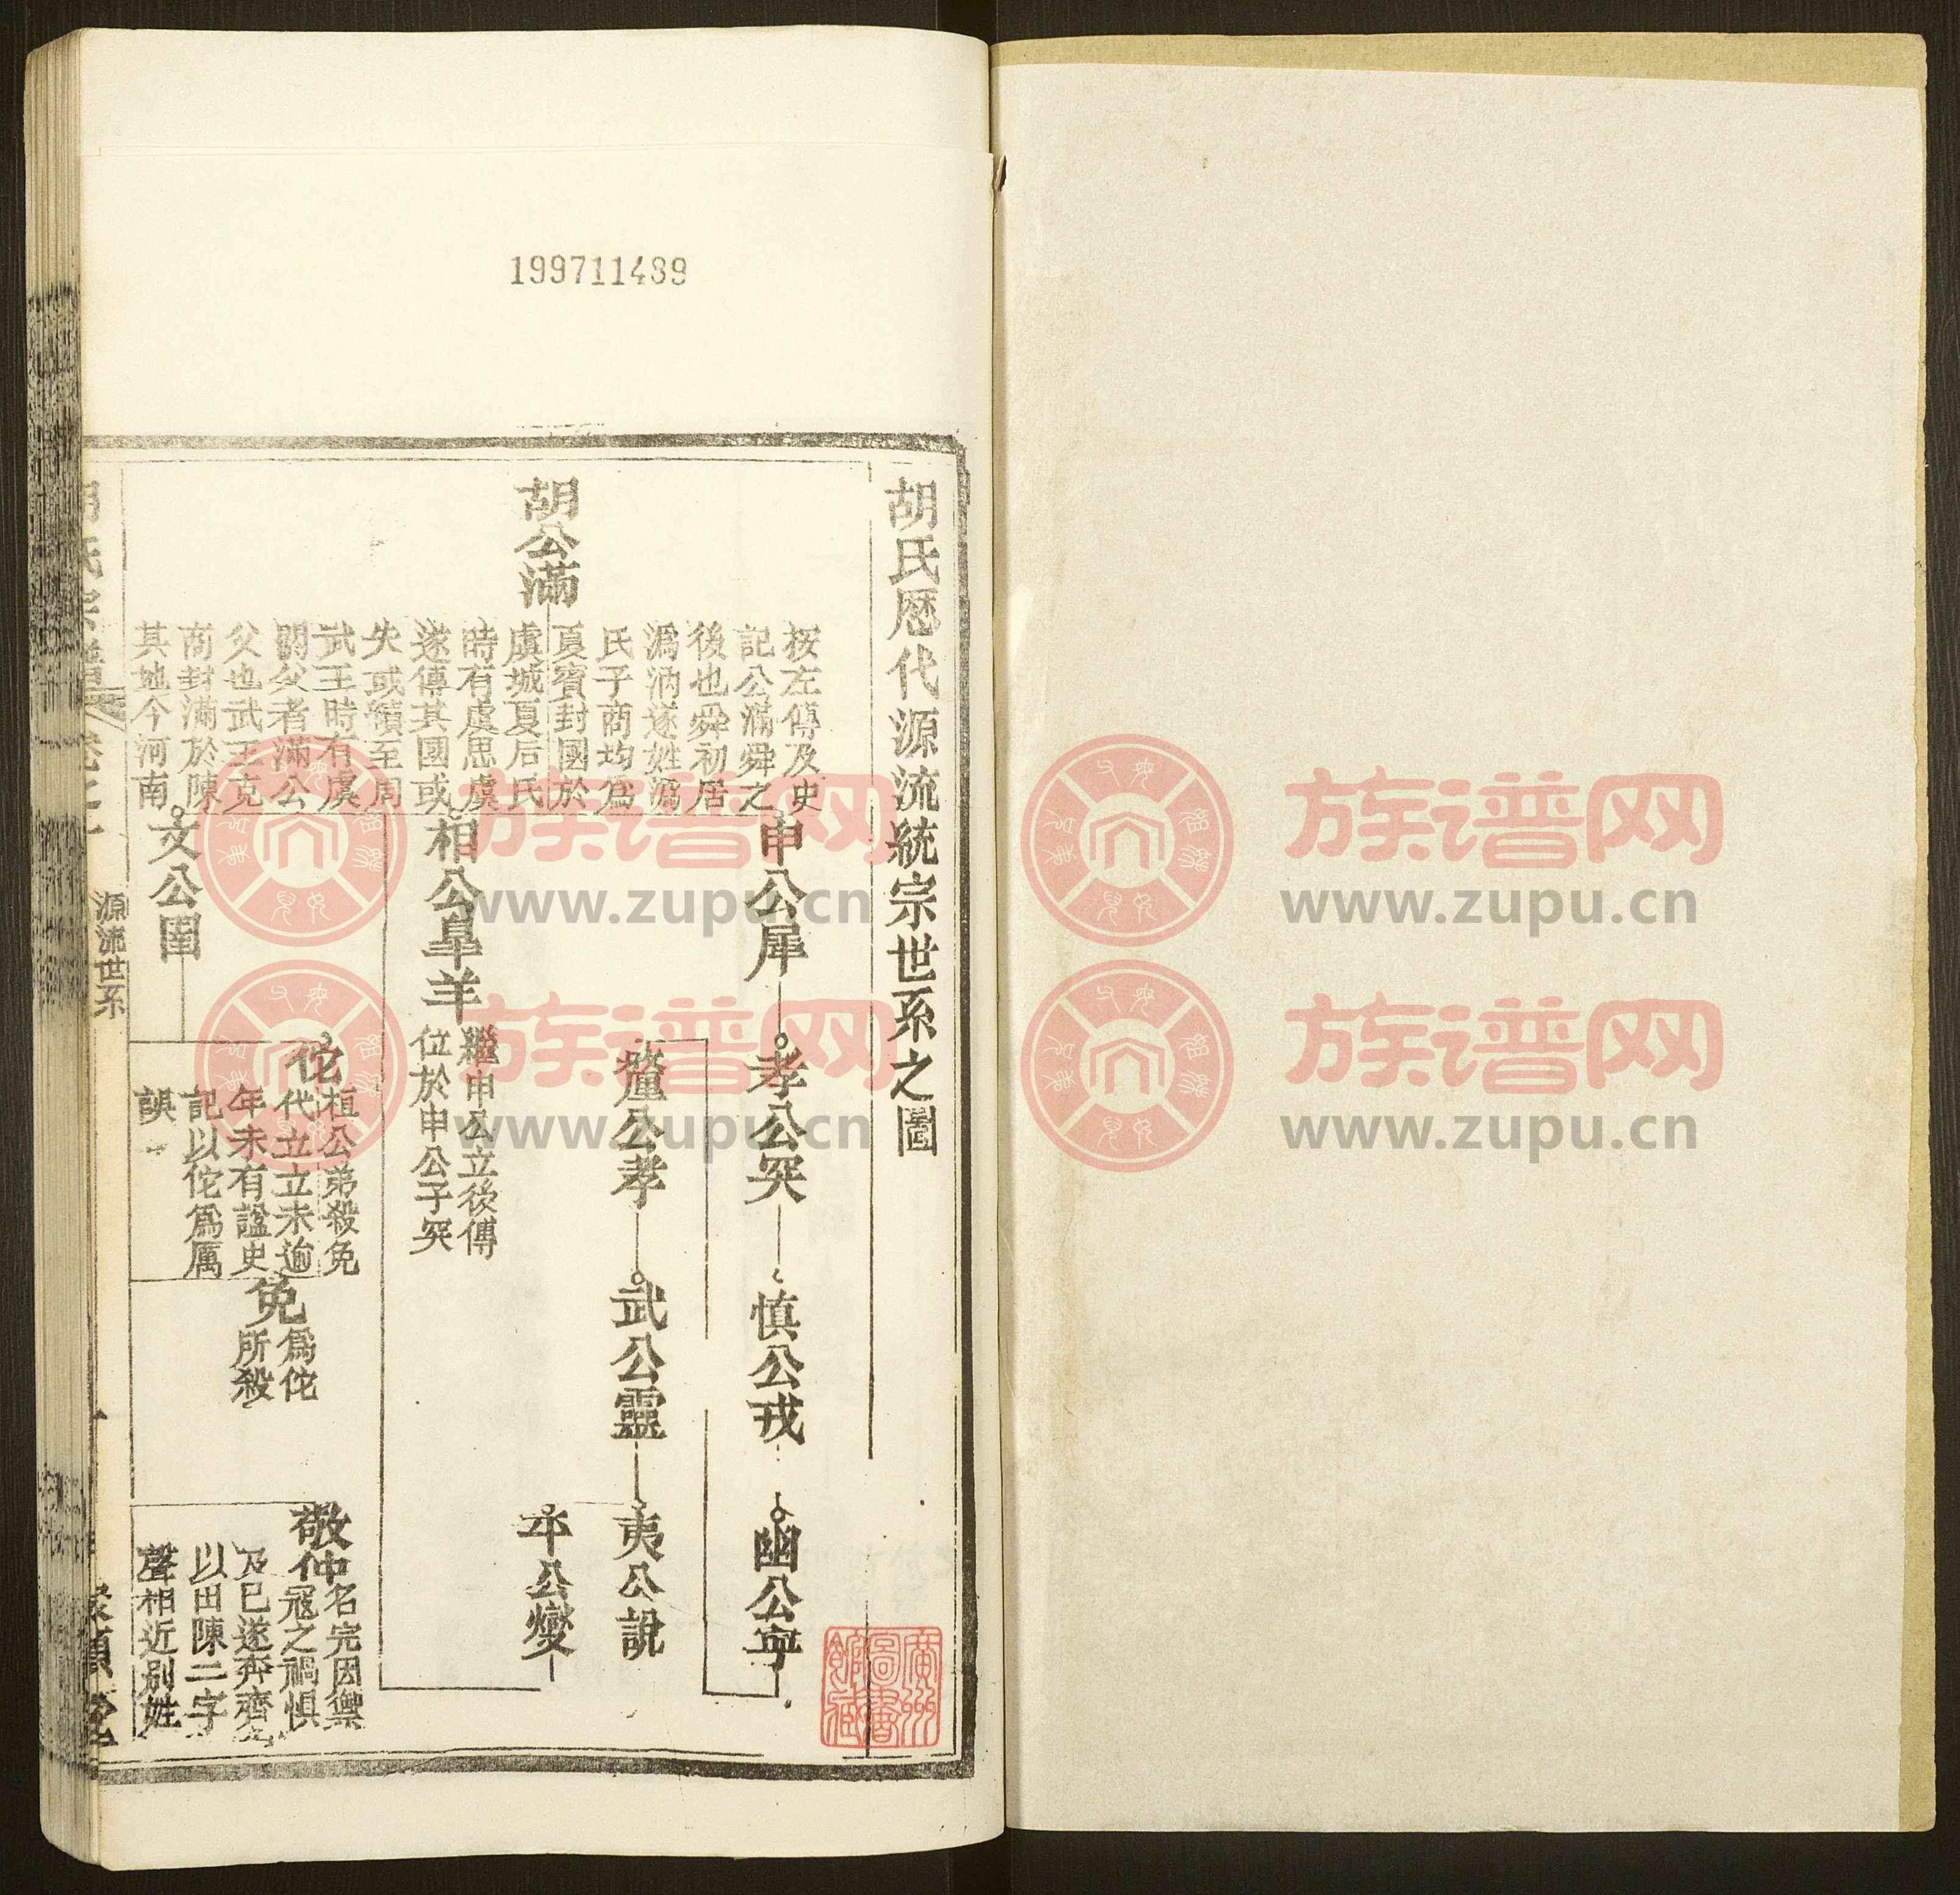 199711489
胡氏歷代源流統宗世系之圖
胡公滿
按左傳及史
記公滿舜之
後也舜初居
溈汭遂姓溈
氏子商均爲
夏賓封國於
虞城夏后氏
時有虞思虞
遂傳其國或
失或續至周
武王時有虞
閼父者滿公
父也武王克
商封滿於陳
其地今河南
申公犀
相公臯羊
繼申公立後傳
位於申公子突
孝公突
慎公戎
幽公寧
釐公孝
武公靈
夷公說
平公燮
文公圉
佗
桓公弟殺免
代立立未逾
年未有諡史
記以佗爲厲
誤
免
爲佗
所殺
敬仲
名完因禦
寇之禍懼
及已遂奔齊
以田陳二字
聲相近別姓
源流世系
廣州
圖書
館藏
族谱网
www.zupu.cn
族谱网
www.zupu.cn
族谱网
www.zupu.cn
族谱网
www.zupu.cn